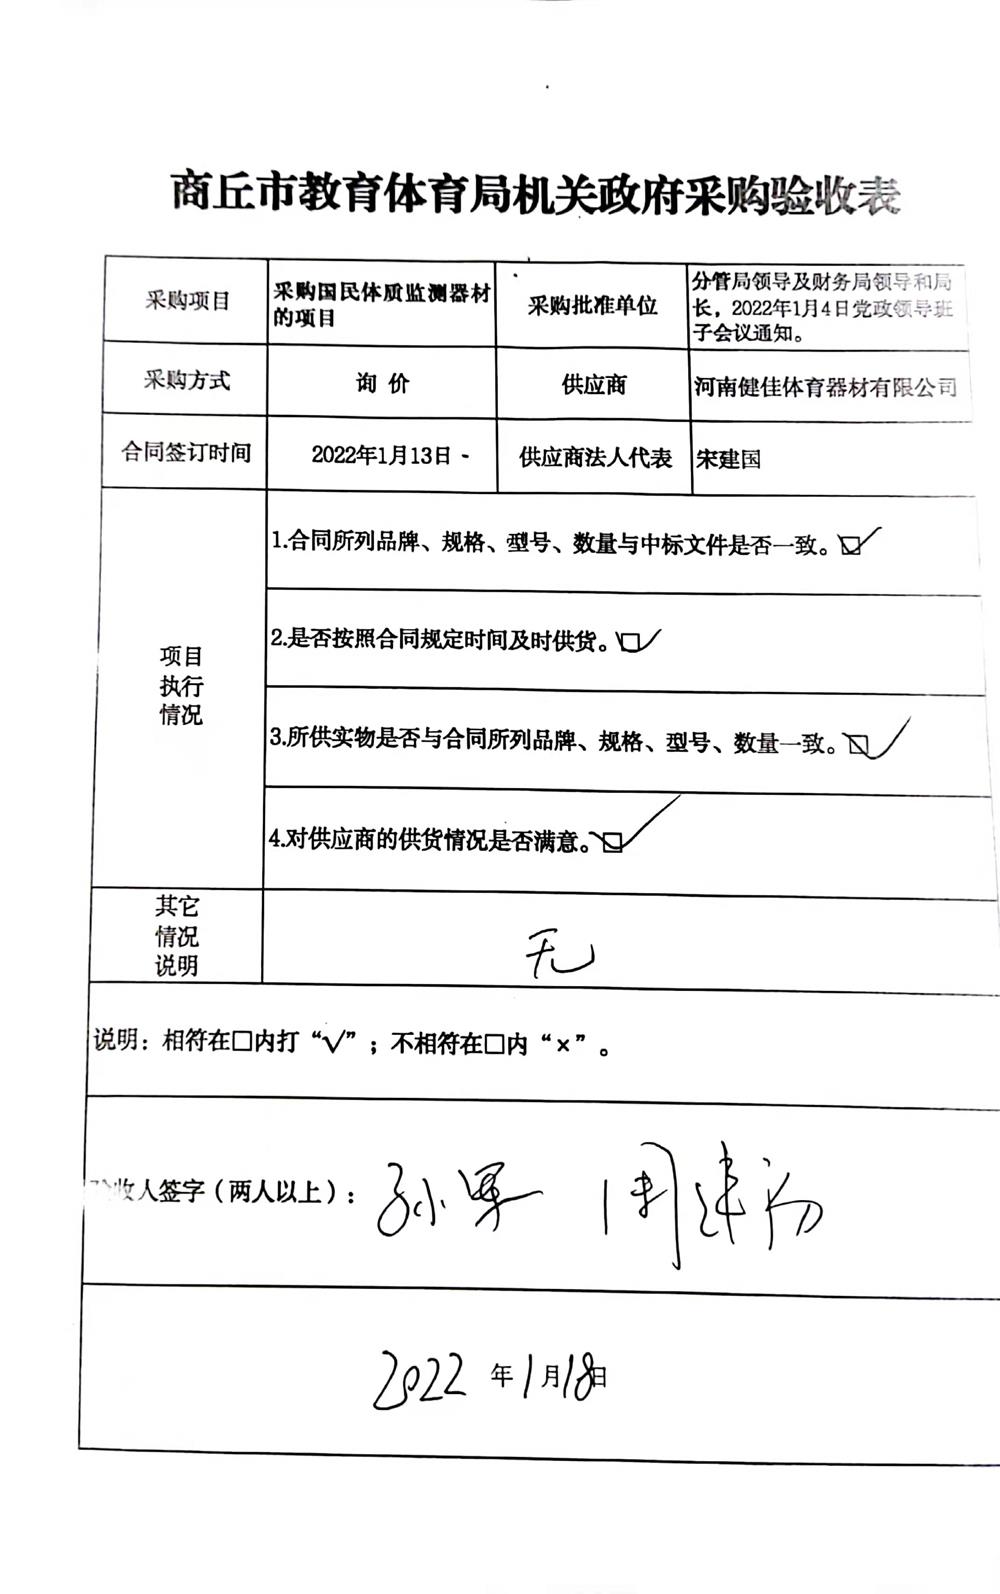 商丘市教育体育局机关政府采购验收表
采购项目
采购国民体质监测器材
的项目
采购批准单位
分管局领导及财务局领导和局
长，2022年1月4日党政领导班
子会议通知。
采购方式
询 价
供应商
河南健佳体育器材有限公司
合同签订时间
2022年1月13日
供应商法人代表
宋建国
项目
执行
情况
1.合同所列品牌、规格、型号、数量与中标文件是否一致。☑
2.是否按照合同规定时间及时供货。☑
3.所供实物是否与合同所列品牌、规格、型号、数量一致。☑
4.对供应商的供货情况是否满意。☑
其它
情况
说明
无
说明：相符在□内打“√”；不相符在□内“×”。
验收人签字（两人以上）：
2022 年 1 月 18 日